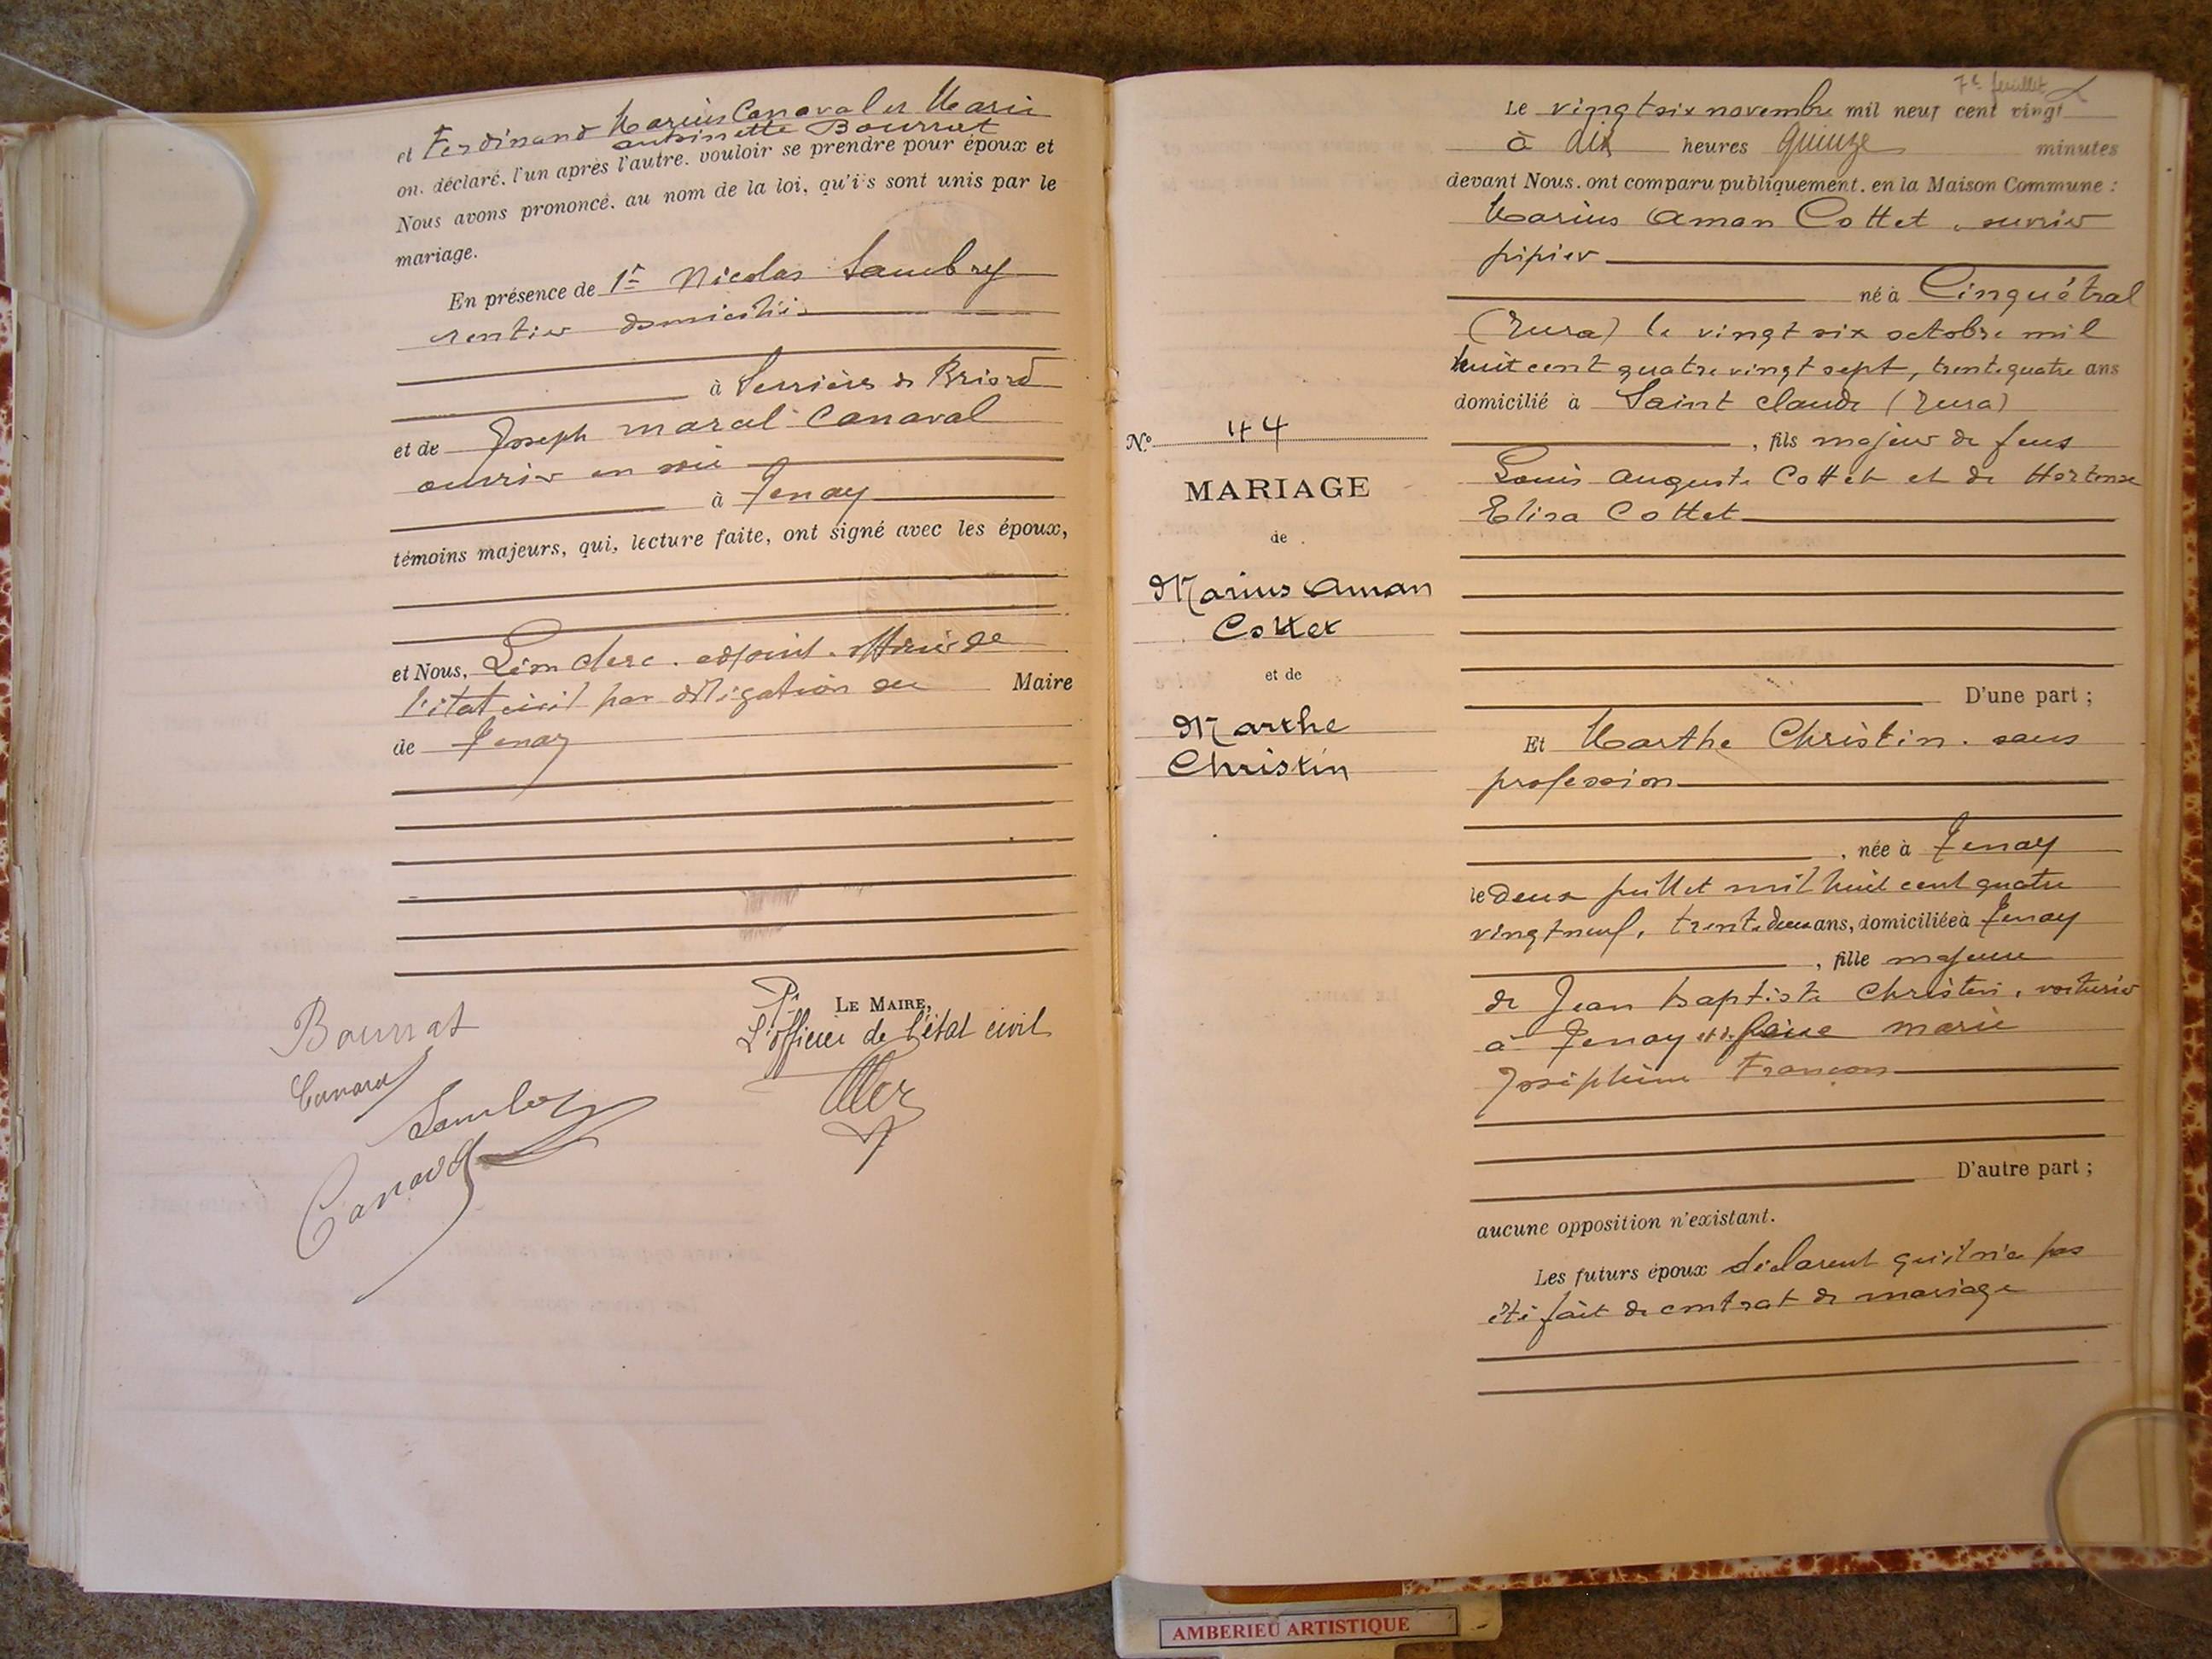 et Ferdinand Marius Canaval et Marie
antoinette Bourrat
on. déclaré. l'un après l'autre. vouloir se prendre pour époux et
Nous avons prononcé. au nom de la loi, qu'i's sont unis par le
mariage.
En présence de 1er Nicolas Sambry
rentier domicilié
à Serrières de Briord
et de Joseph marcel Canaval
ouvrier en soie
à Tenay
témoins majeurs, qui, lecture faite, ont signé avec les époux,
et Nous, Léon clerc. adjoint. officier de
l'état civil par délégation du Maire
de Tenay
Pr LE MAIRE,
L'officier de l'état civil
Bourrat
Canaval
Sambry
Canaval
7e feuillet
Le vingt six novembre mil neuf cent vingt
à dix heures quinze minutes
devant Nous. ont comparu publiquement. en la Maison Commune :
Marius Aman Cottet, ouvrier
pipier
né à Cinquétral
(Jura) le vingt six octobre mil
huit cent quatre vingt sept, trente quatre ans
domicilié à Saint Claude (Jura)
, fils majeur de feus
Louis auguste Cottet et de Hortense
Elisa Cottet
D'une part ;
Et Marthe Christin. sans
profession
, née à Tenay
le deux juillet mil huit cent quatre
vingt neuf, trente deux ans, domiciliée à Tenay
, fille majeure
de Jean baptiste Christin, voiturier
à Tenay et de feue marie
Joséphine Françon
D'autre part ;
aucune opposition n'existant.
Les futurs époux déclarent qu'il n'a pas
été fait de contrat de mariage
No 44
MARIAGE
de
Marius Aman
Cottet
et de
Marthe
Christin
AMBERIEU ARTISTIQUE